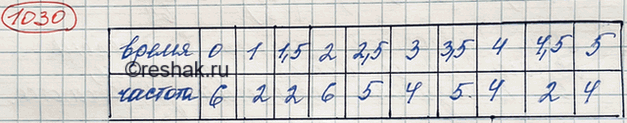 1030
время 0 1 1,5 2 2,5 3 3,5 4 4,5 5
©reshak.ru
частота 6 2 2 6 5 4 5. 4 2 4